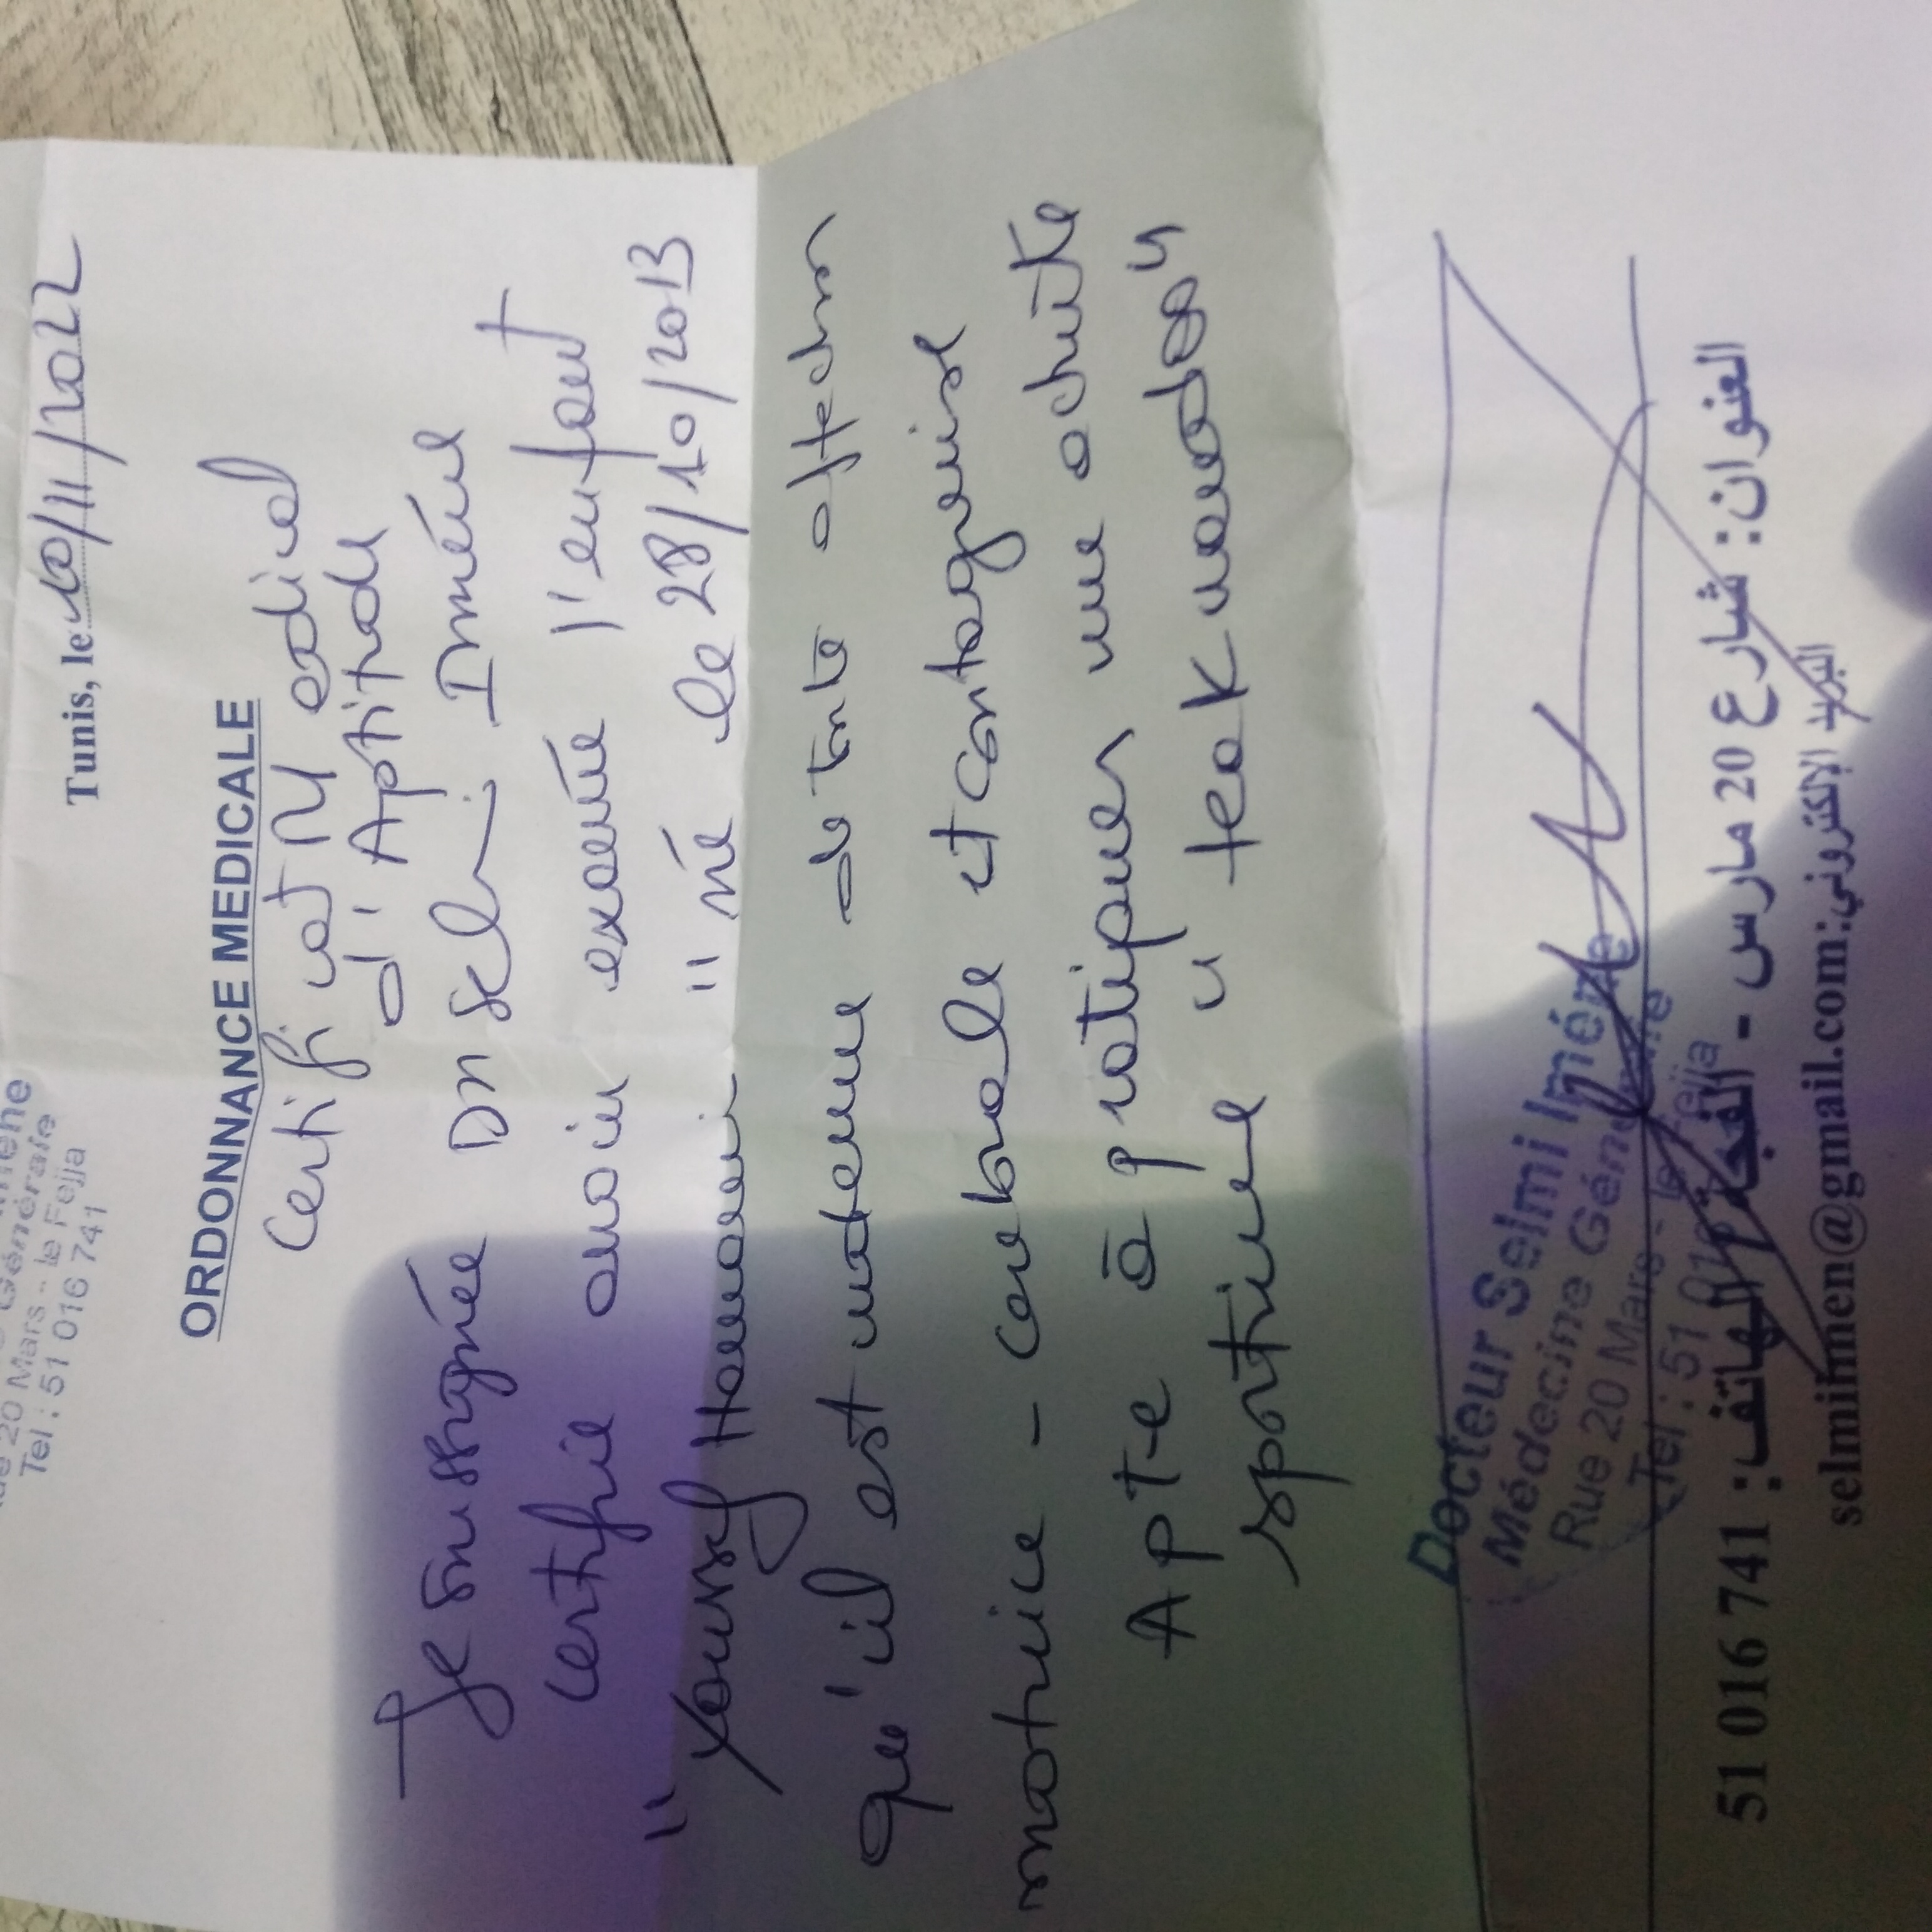 Médecine Générale
Rue 20 Mars - le Fejja
Tel : 51 016 741
Tunis, le 10/11/2022
ORDONNANCE MEDICALE
Certificat Médical
d'Aptitude
Je soussignée Dr Selmi Iméne
certifie avoir examiné l'enfant
" Yousef Hammami " né le 28/10/2013
qu'il est indemne de toute affection
motrice - cérébrale et contagieuse
Apte à pratiquer une activité
sportive " teakwondo "
Docteur Selmi Iméne
Médecine Générale
Rue 20 Mars - le Fejja
Tel : 51 016
العنوان: شارع 20 مارس - الفجة الهاتف: 51 016 741
البريد الإلكتروني: selmiimen@gmail.com